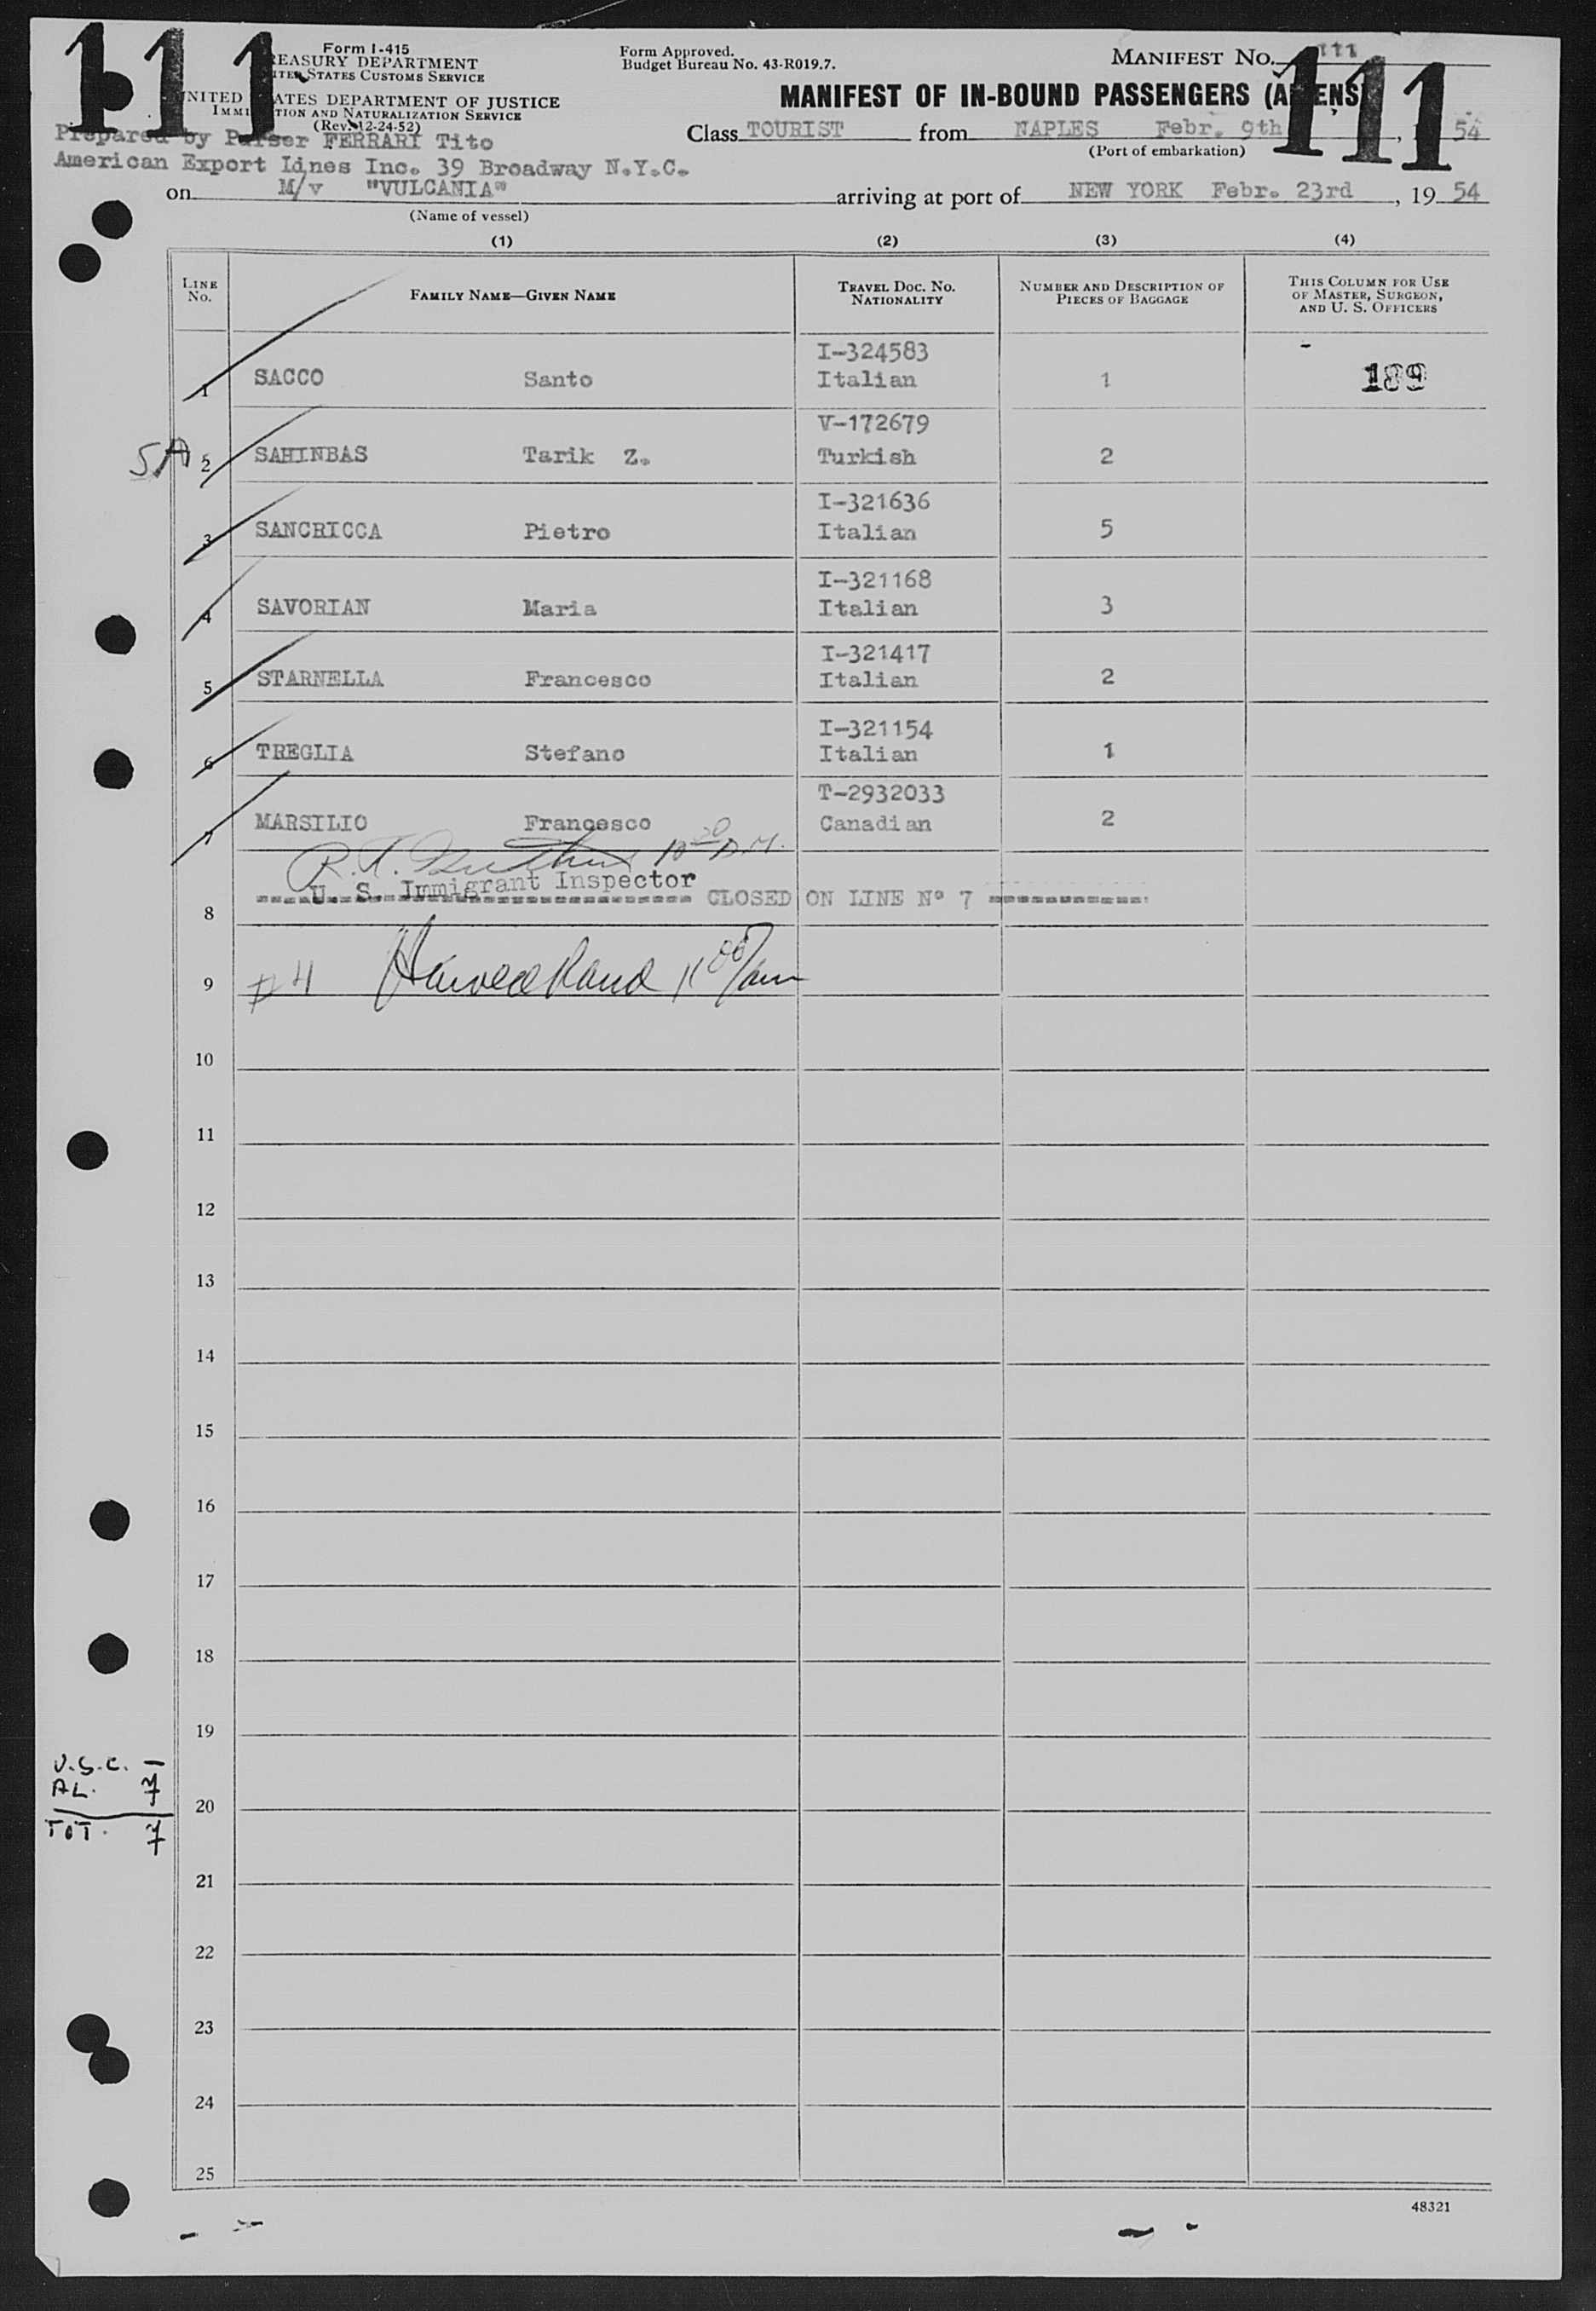 111
111
Form I-415
TREASURY DEPARTMENT
UNITED STATES CUSTOMS SERVICE
UNITED STATES DEPARTMENT OF JUSTICE
IMMIGRATION AND NATURALIZATION SERVICE
(Rev. 12-24-52)
Form Approved.
Budget Bureau No. 43-R019.7.
MANIFEST NO. 111
MANIFEST OF IN-BOUND PASSENGERS (ALIENS)
Class TOURIST from NAPLES Febr. 9th , 1954
(Port of embarkation)
Prepared by Purser FERRARI Tito
American Export Lines Inc. 39 Broadway N.Y.C.
on M/v "VULCANIA" arriving at port of NEW YORK Febr. 23rd , 19 54
(Name of vessel)
(1) (2) (3) (4)
LINE NO. FAMILY NAME—GIVEN NAME TRAVEL DOC. NO. NATIONALITY NUMBER AND DESCRIPTION OF PIECES OF BAGGAGE THIS COLUMN FOR USE OF MASTER, SURGEON, AND U. S. OFFICERS
I-324583
1 SACCO Santo Italian 1 189
V-172679
SA 2 SAHINBAS Tarik Z. Turkish 2
I-321636
3 SANCRICCA Pietro Italian 5
I-321168
4 SAVORIAN Maria Italian 3
I-321417
5 STARNELLA Francesco Italian 2
I-321154
6 TREGLIA Stefano Italian 1
T-2932033
7 MARSILIO Francesco Canadian 2
R. A. 10 30 A.M.
U. S. Immigrant Inspector
8 CLOSED ON LINE Nº 7
9 #4 11 00/am
10
11
12
13
14
15
16
17
18
19
U.S.C. –
AL. 7
20
TOT. 7
21
22
23
24
25
48321